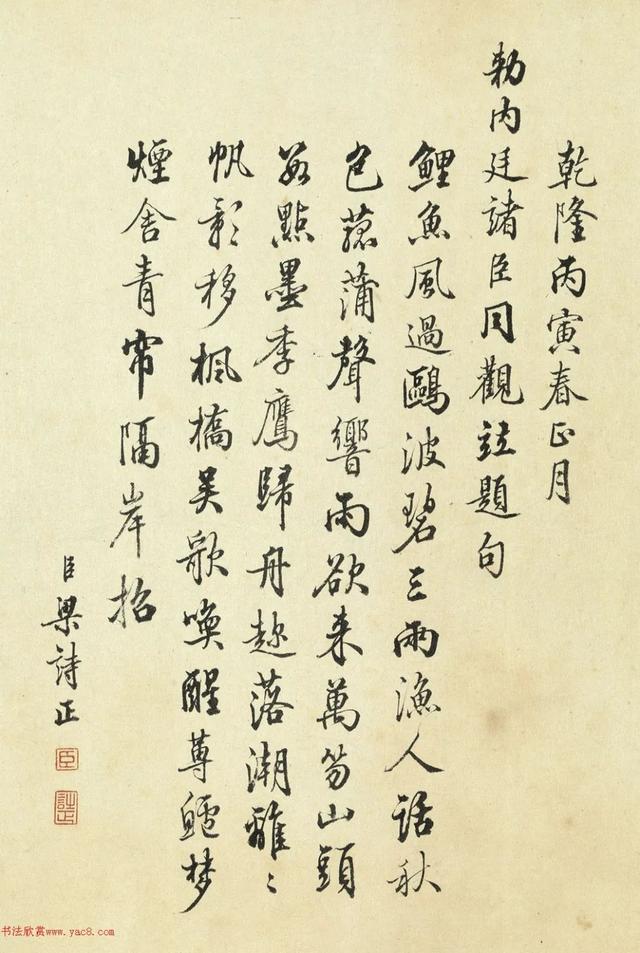 乾隆丙寅春正月
勅内廷諸臣同觀竝題句
鯉魚風過鷗波碧三兩漁人話秋
色菰蒲聲響雨欲来萬笏山頭
點墨季鷹歸舟趂落潮離〻
帆影移楓橋吴歌喚醒蓴鱸梦
煙舍青帘隔岸招
臣梁詩正
臣
詩正
书法欣赏www.yac8.com